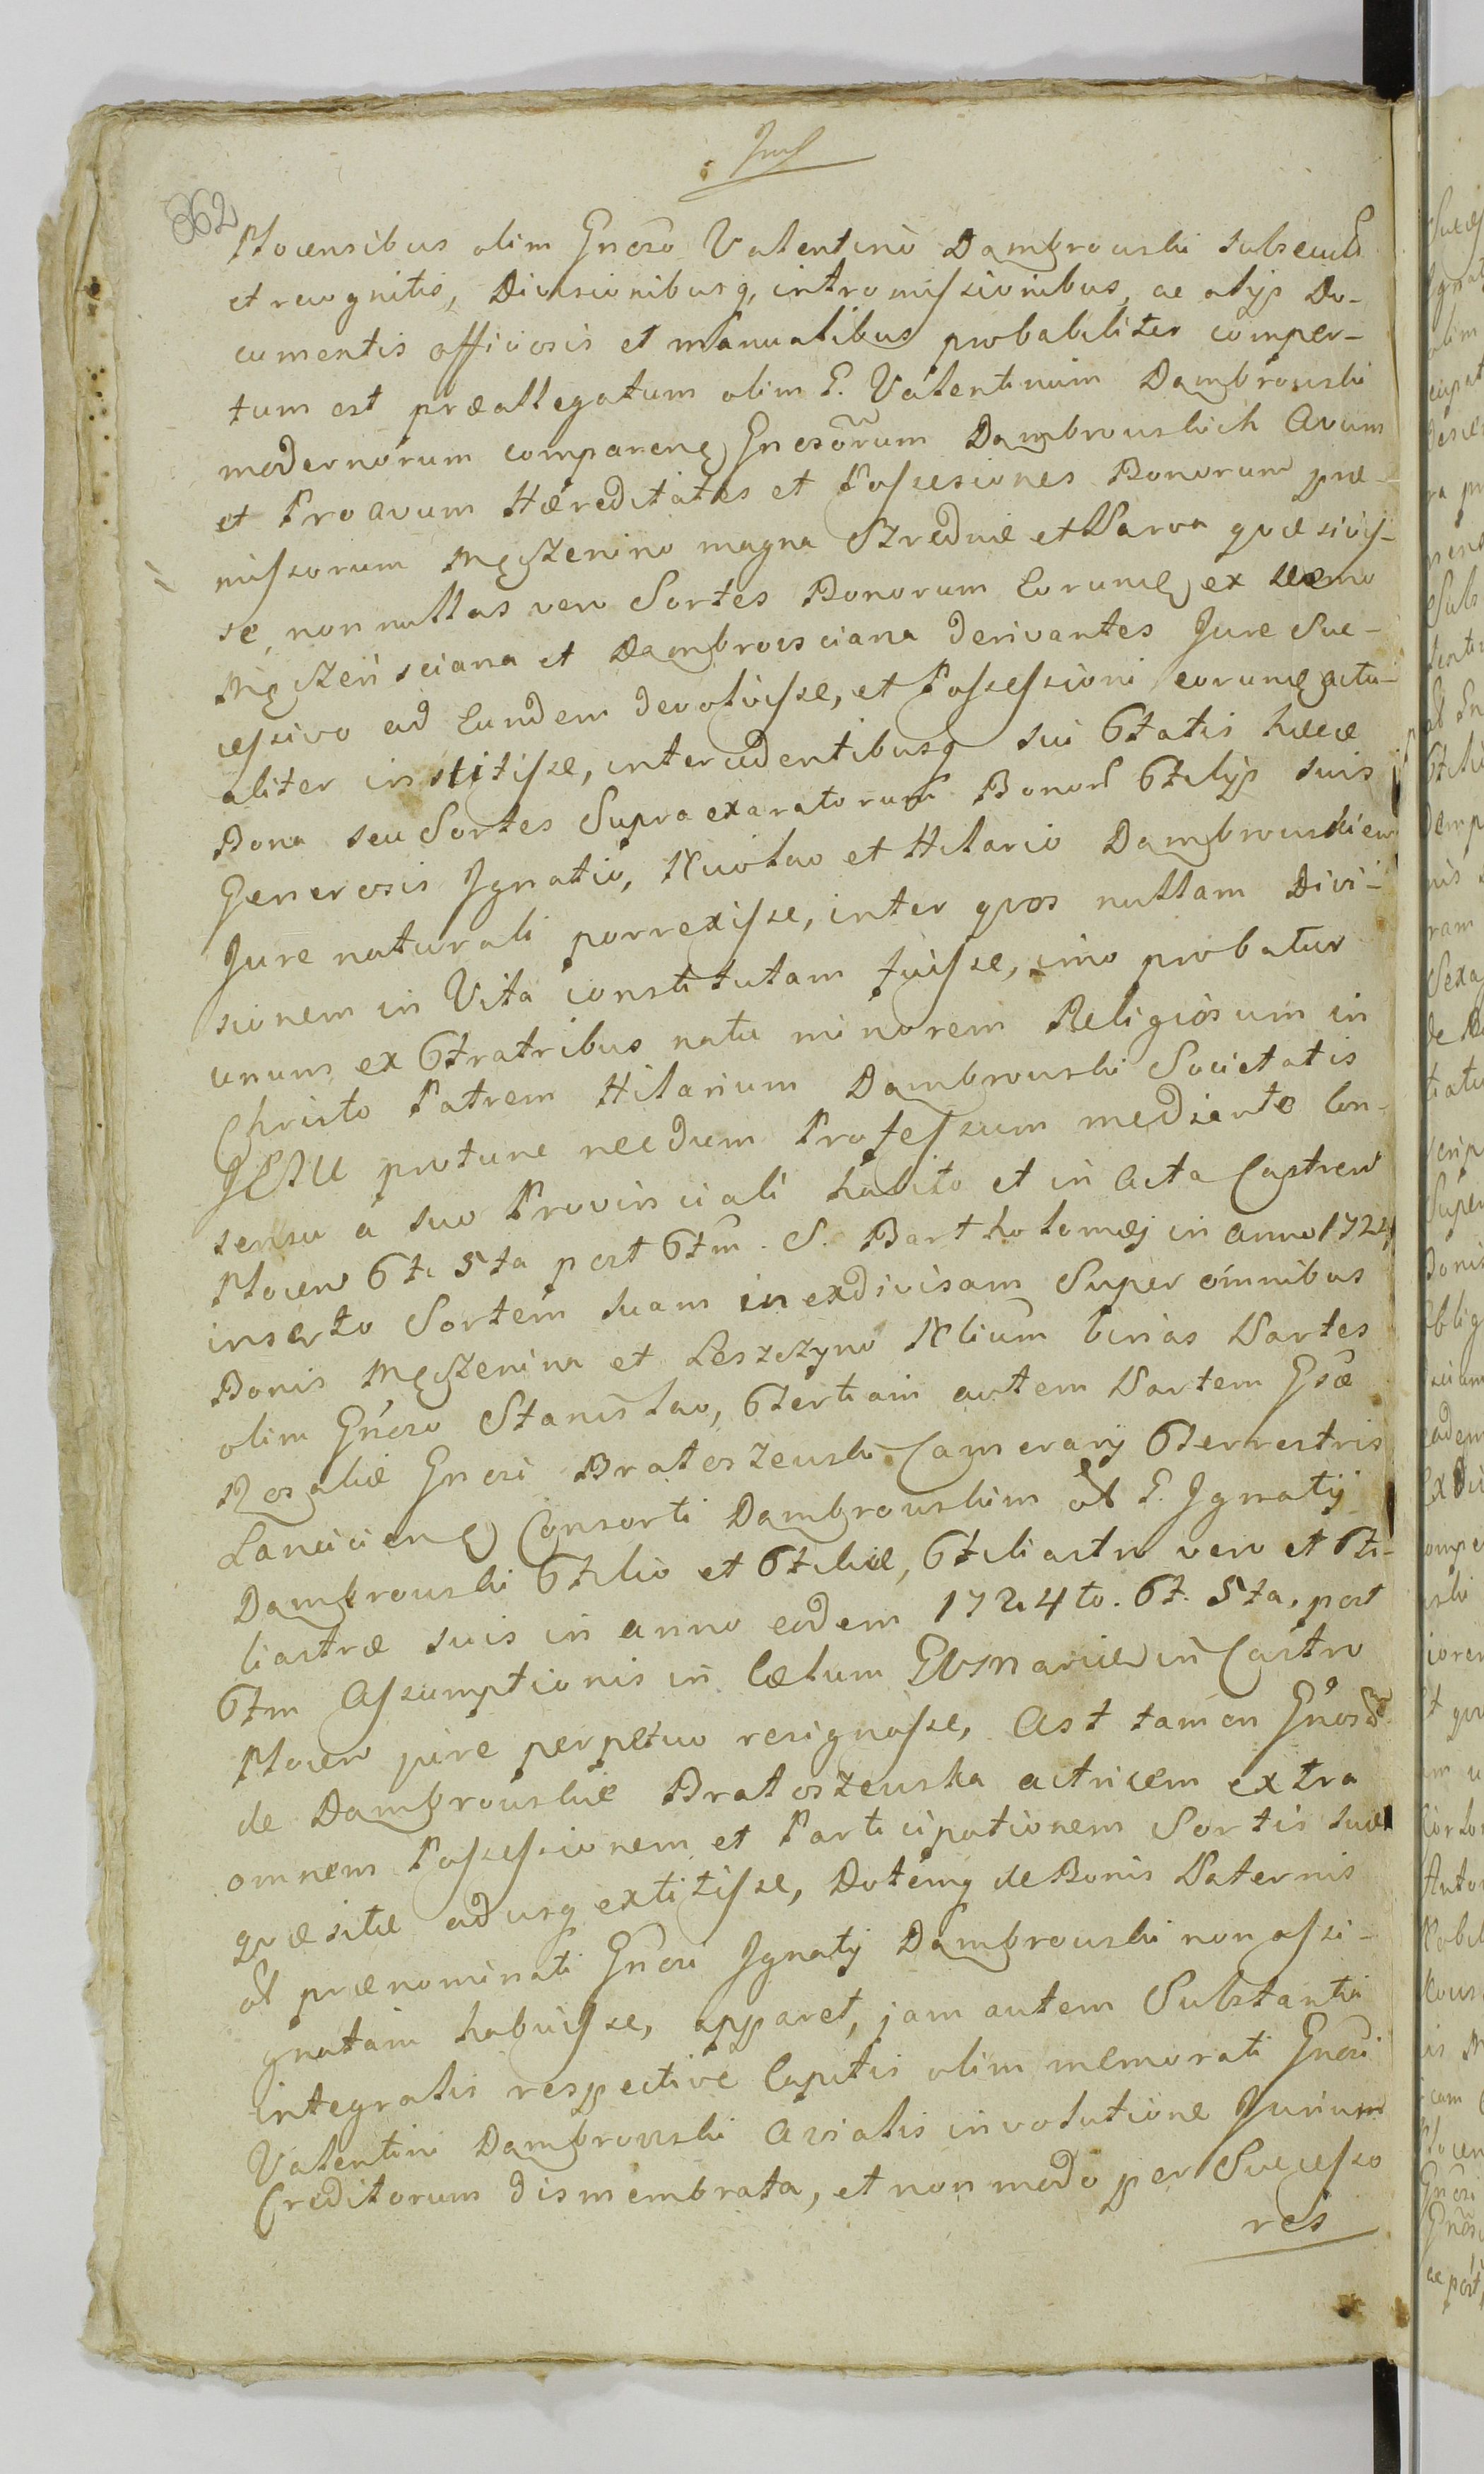 862
Plocensibus olim Gnoso Valentino Dambrouski subsecutis
et recognitis, Divisionibusq, intromissionibus, ac alijs Do-
cumentis officiosis et manualibus probabiliter comper-
tum est præallegatum olim G. Valentinum Dambrouski
modernorum comparen Gnosorum Dambrouskich Avum
et Proavum Hæreditates et Possesiones Bonorum præ-
missorum Męczenino magna Szrednie et Parva quæsivis-
se, non nullas vero Sortes Bonorum Eorund ex
Męczeńsciana et Dambrowsciana derivantes Jure Suc-
cessivo ad Eundem devolvisse, et Possessioni eorund actu-
aliter institisse, intercedentibusq sui Fatis hæce
Bona seu Sortes Supra exaratorum Bonor Filijs suis
Generosis Ignatio, Nicolao et Hilario Dambrouskiew
Jure naturali porrexisse, inter quos nullam Divi-
sionem in Vita constitutam fuisse, imo probatur
unum ex Fratribus natu minorem Religiosum in
Christo Patrem Hilarium Dambrouski Societatis
JESU protunc necdum Professum mediante Con-
sensu a suo Provinciali habito et in Acta Castren
Plocen F. 5ta post Ftm. S. Bartholomæj in anno 1724
inserto Sortem suam in exdivisam Super omnibus
Bonis Męczenina et Leszczyno binas Partes
olim Gnoso Stanislao, Tertiam autem Partem Gsæ
Rosaliæ Gnosi Bratoszeuski Camerarij Terrestris
Lancicien Consorti Dambrouskim ol G. Ignatij
Dambrouski Filio et Filiæ, Filiastro vero et Fi-
liastræ suis in anno eodem 1724to. F. 5ta. post
Ftm Assumptionis in Cælum BVMariæ in Castro
Plocen jure perpetuo resignasse, Ast tamen Gnosam
de Dambrouskie Bratoszeuska actricem extra
omnem Possessionem et Participationem Sortis suæ
quæsitæ adusq extitisse, Dotemq de Bonis Paternis
ol prænominati Gnosi Ignatij Dambrouski non assi-
gnatam habuisse, apparet, jam autem Substantia
integralis respective Capitis olim memorati Gnosi
Valentini Dambrouski Avialis involutione Jurium
Creditorum dismembrata, et non modo per Successo
res